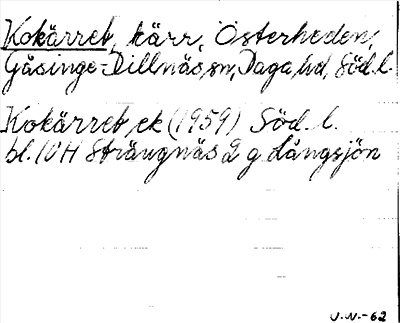 Kokärret, kärr, Österheden,
Gåsinge-Dillnäs sn, Daga hd, Söd. l.
Kokärret ek (1959) Söd. l.
bl. 10H Strängnäs 2 g Långsjön
J.N.-62